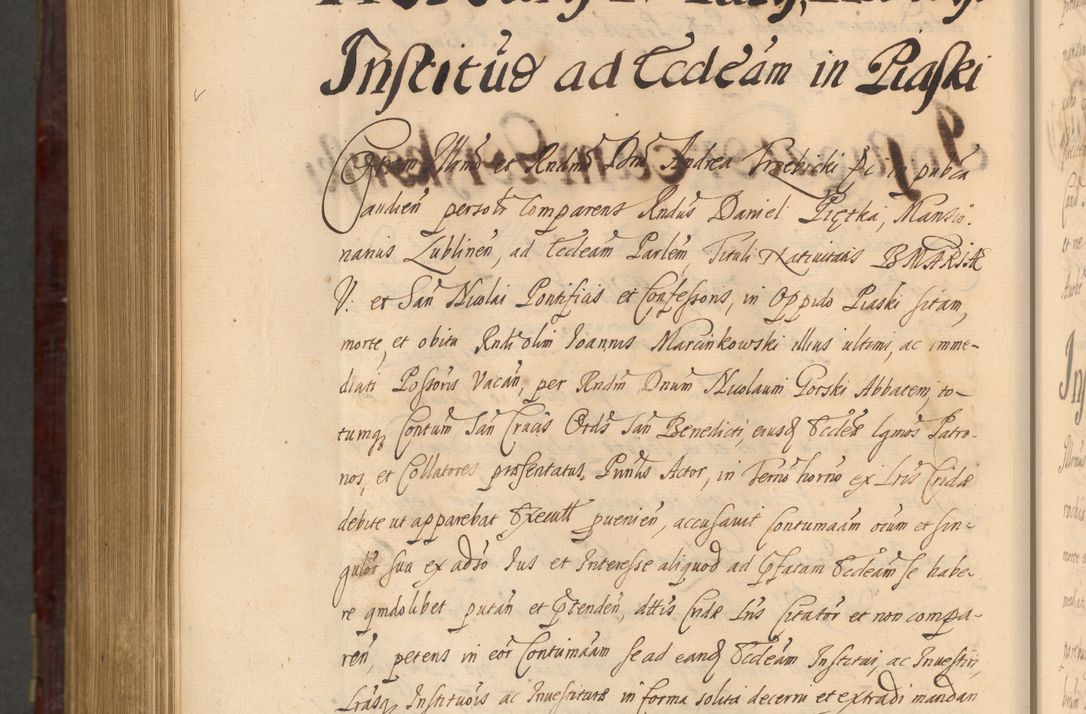 Institūo ad Eccleām in Piaski
Coram Illmō et Rndmō Dnō Andrea Trzebicki Epō in publca
audien personlr Comparens Rndūs Daniel Piętka, Mansio:
narius Lublinen, ad Eccleam Parlem, Tituli Nativitatis B MARIÆ
V: et San Nicolai Pontificis et Confessoris, in Oppido Piaski sitam,
morte, et obitu Rndi olim Ioannis Marcinkowski illius ultimi, ac imme-
diati Possoris Vacan, per Rndm Dnum Nicolaum Gorski Abbatem, to-
tumq Contum San Crucis Ords San Benedicti, eiusd Eccleæ lgmos Patro-
nos, et Collatores præsentatus, Pnnlis Actor, in Termō hornō ex Lris Cridæ
debite ut apparebat Execult puenien, accusavit Contumaām oīum et sin-
gulor sua ex adso Ius et Interesse aliquod ad Pfatam Eccleam se habe-
re qmdolibet putan et Ptenden, dttis Cridæ Lris Citator et non compa-
ren, petens in eor Contumaām se ad eand Eccleām Institui, ac Investiri,
Lrasq Institūois ac Investituræ in forma solita decerni et extradi mandari